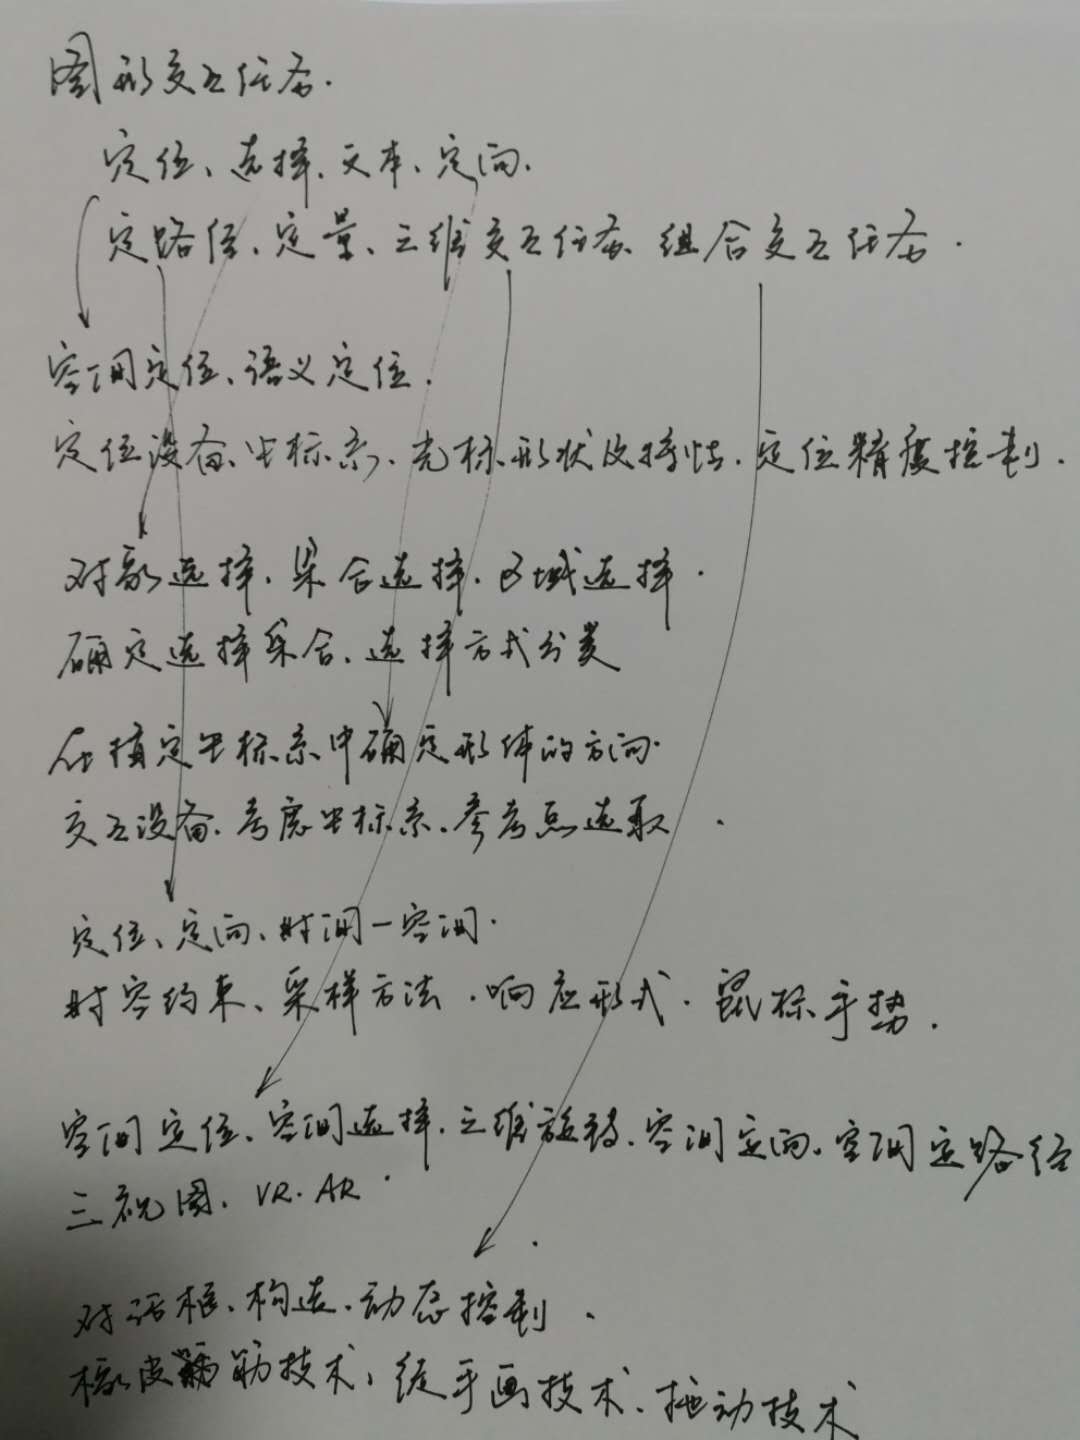 图形交互任务.
定位、选择、文本、定向.
定路径、定量、三维交互任务、组合交互任务.
空间定位、语义定位.
定位设备、坐标系、光标形状及特性、定位精度控制.
对象选择、集合选择、区域选择.
确定选择集合、选择方式分类
在指定坐标系中确定形体的方向.
交互设备、考虑坐标系、参考点选取.
定位、定向、时间一空间.
时空约束、采样方法、响应形式、鼠标手势.
空间定位、空间选择、三维旋转、空间定向、空间定路径
三视图、VR、AR.
对话框、构造、动态控制.
橡皮筋技术、徒手画技术、拖动技术